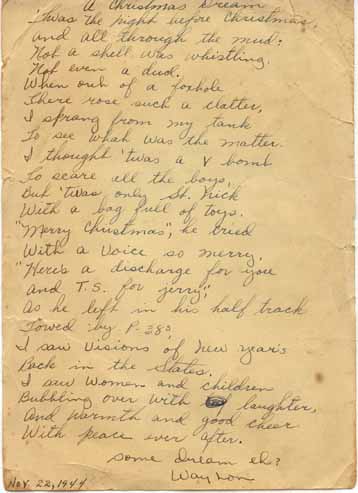 A Christmas Dream
'Twas the night before Christmas,
and all through the mud;
Not a shell was whistling,
Not even a dud.
When out of a foxhole
There rose such a clatter,
I sprang from my tank
To see what was the matter.
I thought 'twas a V bomb
To scare all the boys,
But 'twas only St. Nick
With a bag full of toys.
"Merry Christmas", he cried
With a voice so merry,
"Here's a discharge for you
and T.S. for jerry",
As he left in his half track
Towed by P. 38s
I saw Visions of New year's
Back in the States.
I saw Women and children
Bubbling over with laughter,
And warmth and good cheer
With peace ever after.
some Dream eh?
Way Lon
Nov. 22, 1944